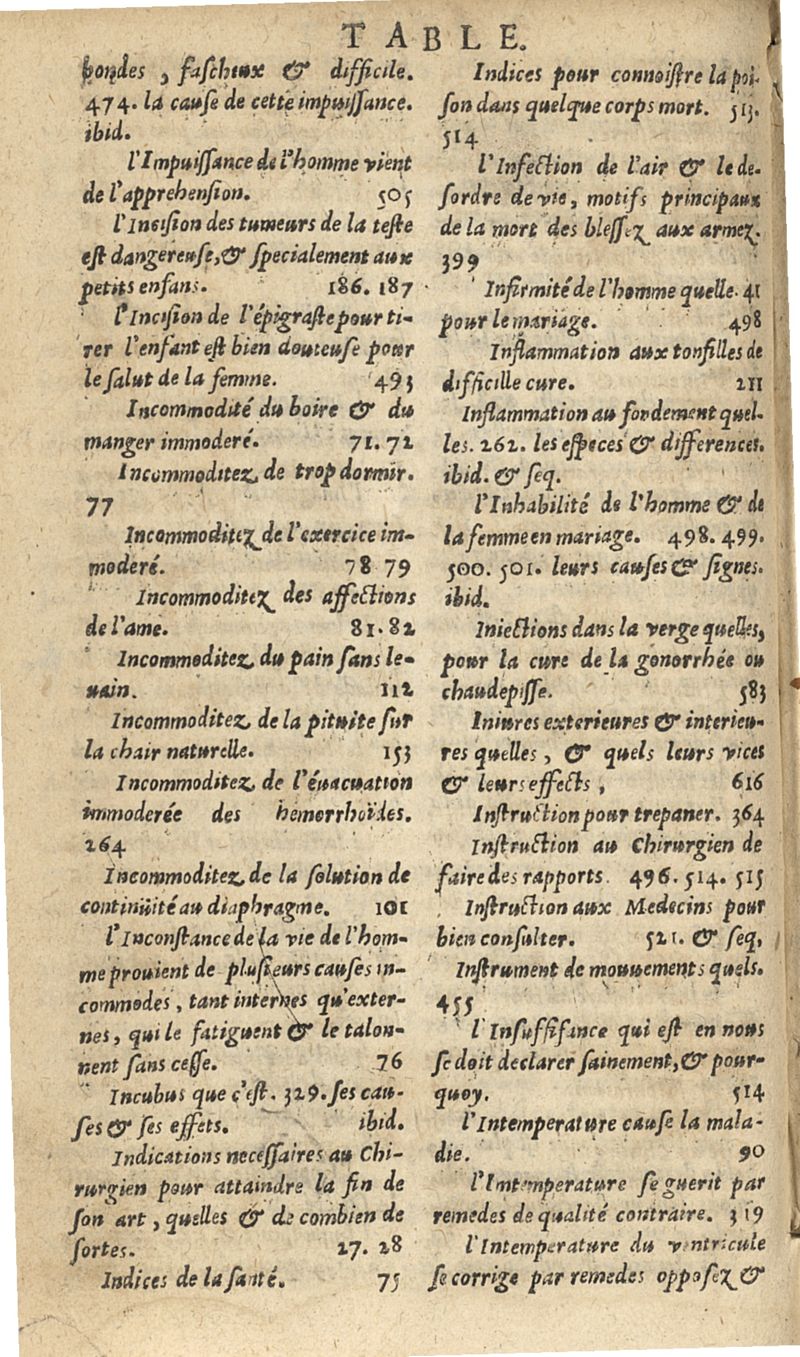 TABLE.
bondes, fascheux & difficile.
474. la cause de cette impuissance.
ibid.
l'Impuissance de l'homme vient
de l'apprehension. 505
l'Incision des tumeurs de la teste
est dangereuse, & specialement aux
petits enfans. 186. 187
l'Incision de l'épigastre pour ti-
rer l'enfant est bien douteuse pour
le salut de la femme. 493
Incommodité du boire & du
manger immoderé. 71. 72
Incommoditez de trop dormir.
77
Incommoditez de l'exercice im-
moderé. 78 79
Incommoditez des affections
de l'ame. 81. 82
Incommoditez du pain sans le-
uain. 112
Incommoditez de la pituite sur
la chair naturelle. 153
Incommoditez de l'éuacuation
immoderée des hemorrhoïdes.
264
Incommoditez de la solution de
continüité au diaphragme. 101
l'Inconstance de la vie de l'hom-
me prouient de plusieurs causes in-
commodes, tant internes qu'exter-
nes, qui le fatiguent & le talon-
nent sans cesse. 76
Incubus que c'est. 329. ses cau-
ses & ses effets. ibid.
Indications necessaires au Chi-
rurgien pour attaindre la fin de
son art, quelles & de combien de
sortes. 27. 28
Indices de la santé. 75
Indices pour connoistre la poi-
son dans quelque corps mort. 513.
514
l'Infection de l'air & le de-
sordre de vie, motifs principaux
de la mort des blessez aux armez.
399
Infirmité de l'homme quelle. 41
pour le mariage. 498
Inflammation aux tonsilles de
difficille cure. 211
Inflammation au fondement quel-
les. 262. les especes & differences.
ibid. & seq.
l'Inhabilité de l'homme & de
la femme en mariage. 498. 499.
500. 501. leurs causes & signes.
ibid.
Iniections dans la verge quelles,
pour la cure de la gonorrhée ou
chaudepisse. 583
Iniures exterieures & interieu-
res quelles, & quels leurs vices
& leurs effects, 616
Instruction pour trepaner. 364
Instruction au Chirurgien de
faire des rapports. 496. 514. 515
Instruction aux Medecins pour
bien consulter. 521. & seq,
Instrument de mouuements quels.
455
l'Insuffisance qui est en nous
se doit declarer sainement, & pour-
quoy. 514
l'Intemperature cause la mala-
die. 90
l'Intemperature se guerit par
remedes de qualité contraire. 319
l'Intemperature du ventricule
se corrige par remedes opposez &